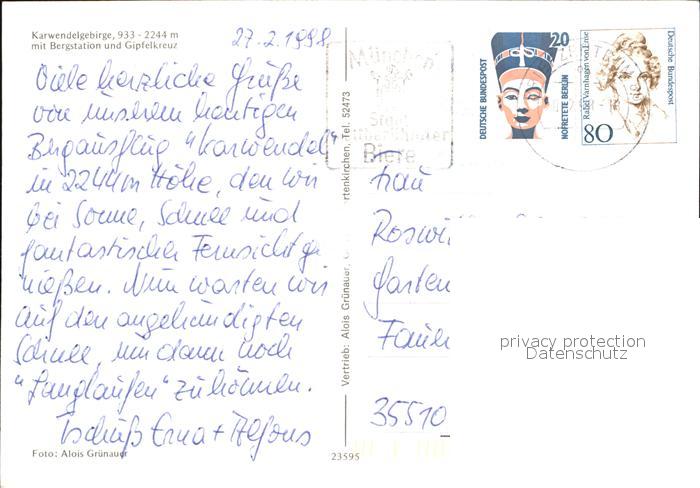 Karwendelgebirge, 933 - 2244 m
mit Bergstation und Gipfelkreuz
27.2.1998
Viele herzliche Grüße
von unserem heutigen
Bergausflug "Karwendel"
in 2244 m Höhe, den wir
bei Sonne, Schnee und
fantastischer Fernsicht ge
nießen. Nun warten wir
auf den angekündigten
Schnee, um dann noch
"Langlaufen" zu können.
Tschüß Erna + Alfons
Foto: Alois Grünauer
Vertrieb: Alois Grünauer,
rtenkirchen, Tel. 52473
23595
München
Stadt
Biere
DEUTSCHE BUNDESPOST
20
NOFRETETE BERLIN
Rahel Varnhagen von Ense
80
Deutsche Bundespost
Frau
Roswi
Garten
35510
privacy protection
Datenschutz